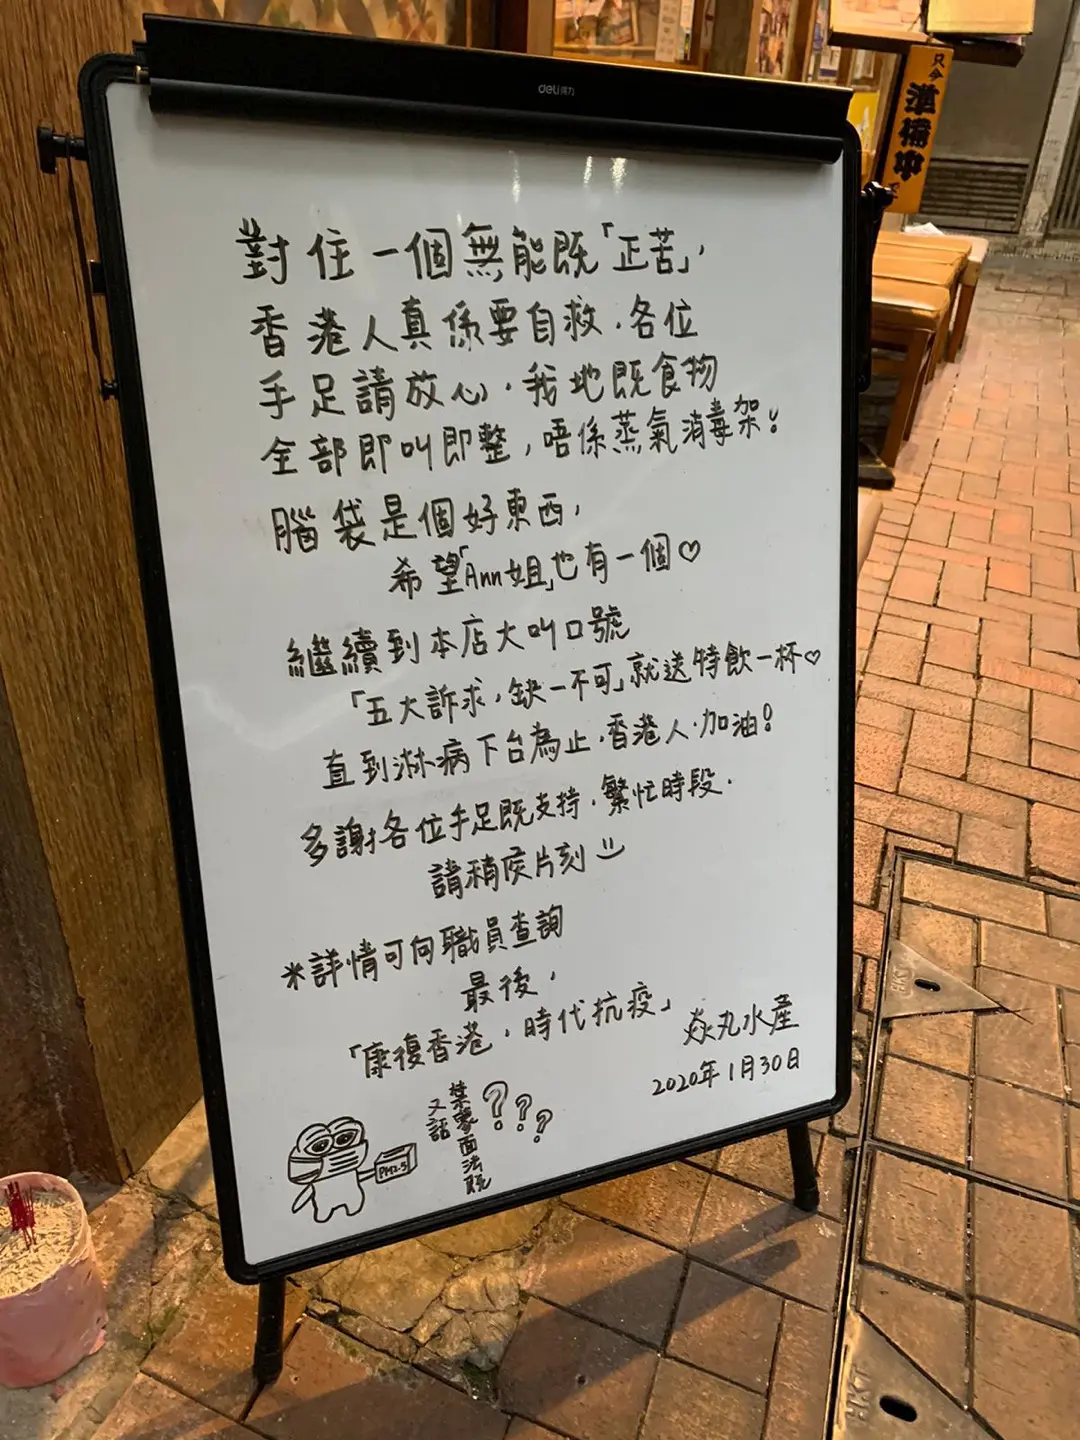 deli得力
只今
準備中
對住一個無能既「正苦」,
香港人真係要自救.各位
手足請放心.我地既食物
全部即叫即整,唔係蒸氣消毒架!
腦袋是個好東西,
希望「Ann姐」也有一個♡
繼續到本店大叫口號
「五大訴求,缺一不可」就送特飲一杯♡
直到淋病下台為止.香港人.加油!
多謝各位手足既支持.繁忙時段.
請稍侯片刻
*詳情可向職員查詢
最後,
「康復香港,時代抗疫」
焱丸水產
2020年1月30日
PM2.5
又話
禁蒙面法既
???